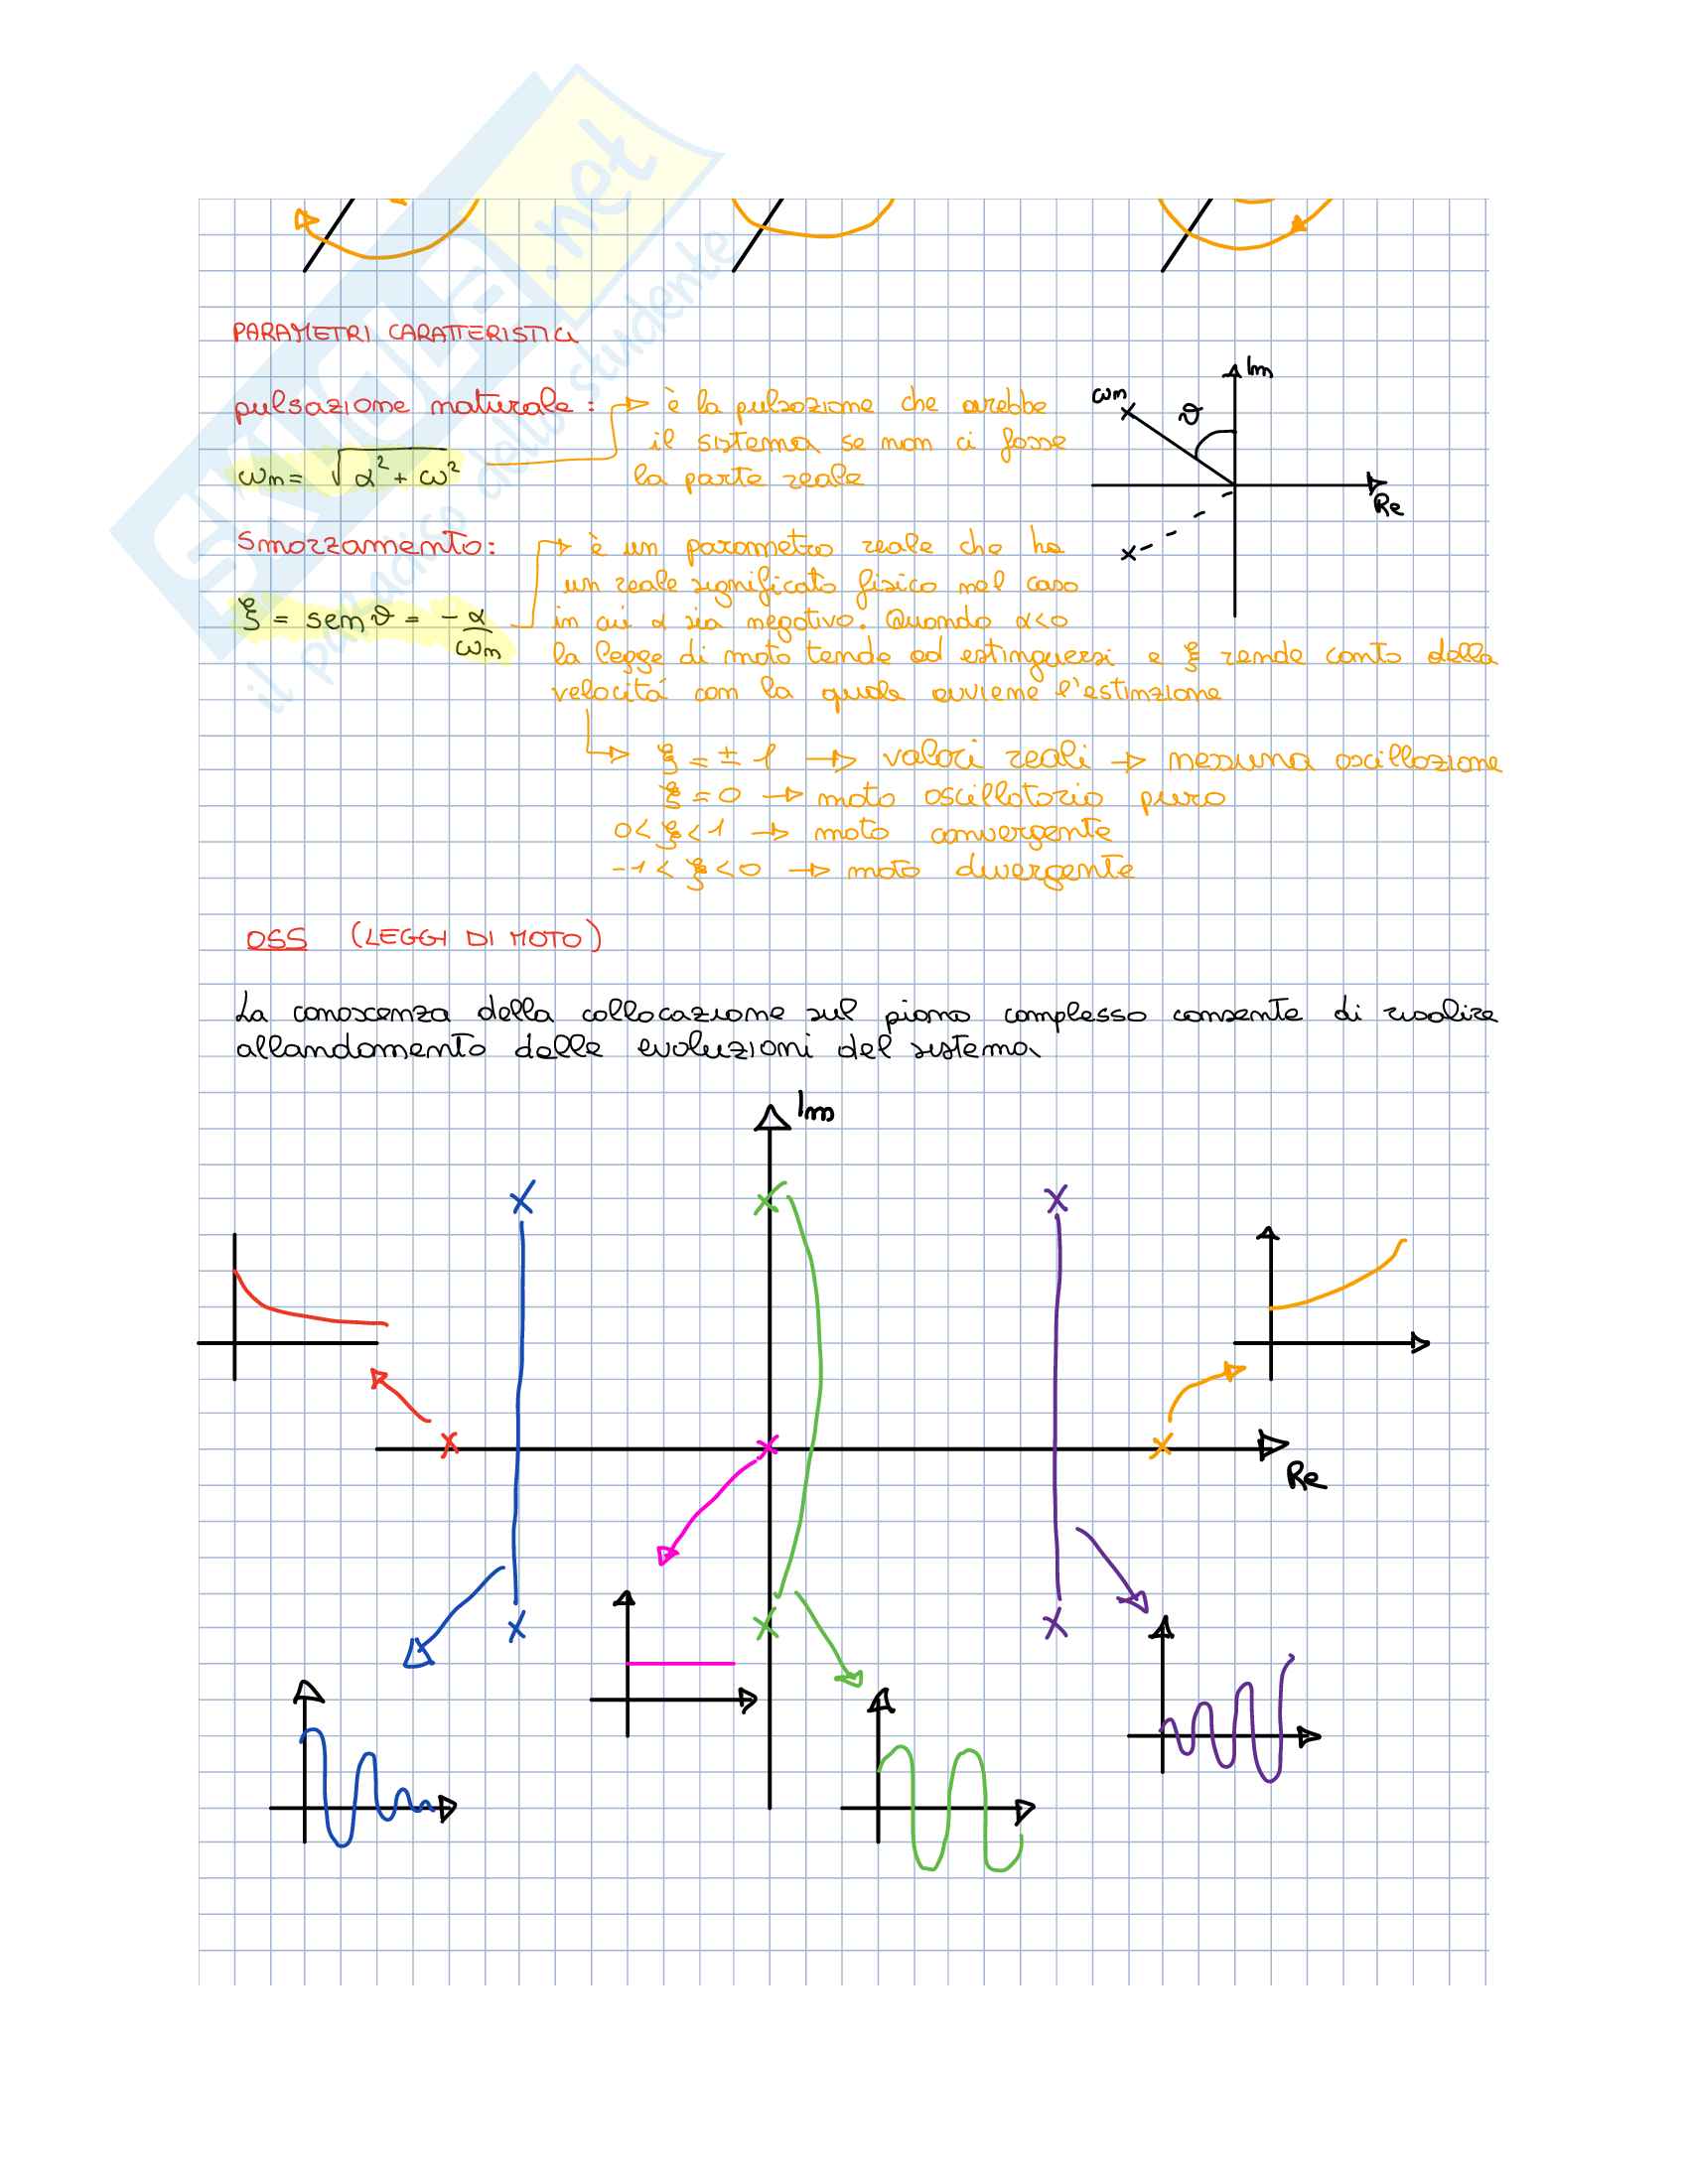 SKUOLA.net
il paradiso dello studente
PARAMETRI CARATTERISTICI
pulsazione naturale:
è la pulsazione che avrebbe
il sistema se non ci fosse
la parte reale
ωn = √α² + ω²
ωn
ϑ
Im
Re
Smorzamento:
è un parametro reale che ha
un reale significato fisico nel caso
in cui α sia negativo. Quando α<0
la legge di moto tende ad estinguersi e ξ rende conto della
velocitá con la quale avviene l'estinzione
ξ = sen ϑ = -α/ωn
ξ = ± 1 → valori reali → nessuna oscillazione
ξ = 0 → moto oscillatorio puro
0 < ξ < 1 → moto convergente
-1 < ξ < 0 → moto divergente
OSS (LEGGI DI MOTO)
La conoscenza della collocazione sul piano complesso consente di risalire
all'andamento delle evoluzioni del sistema
Im
Re